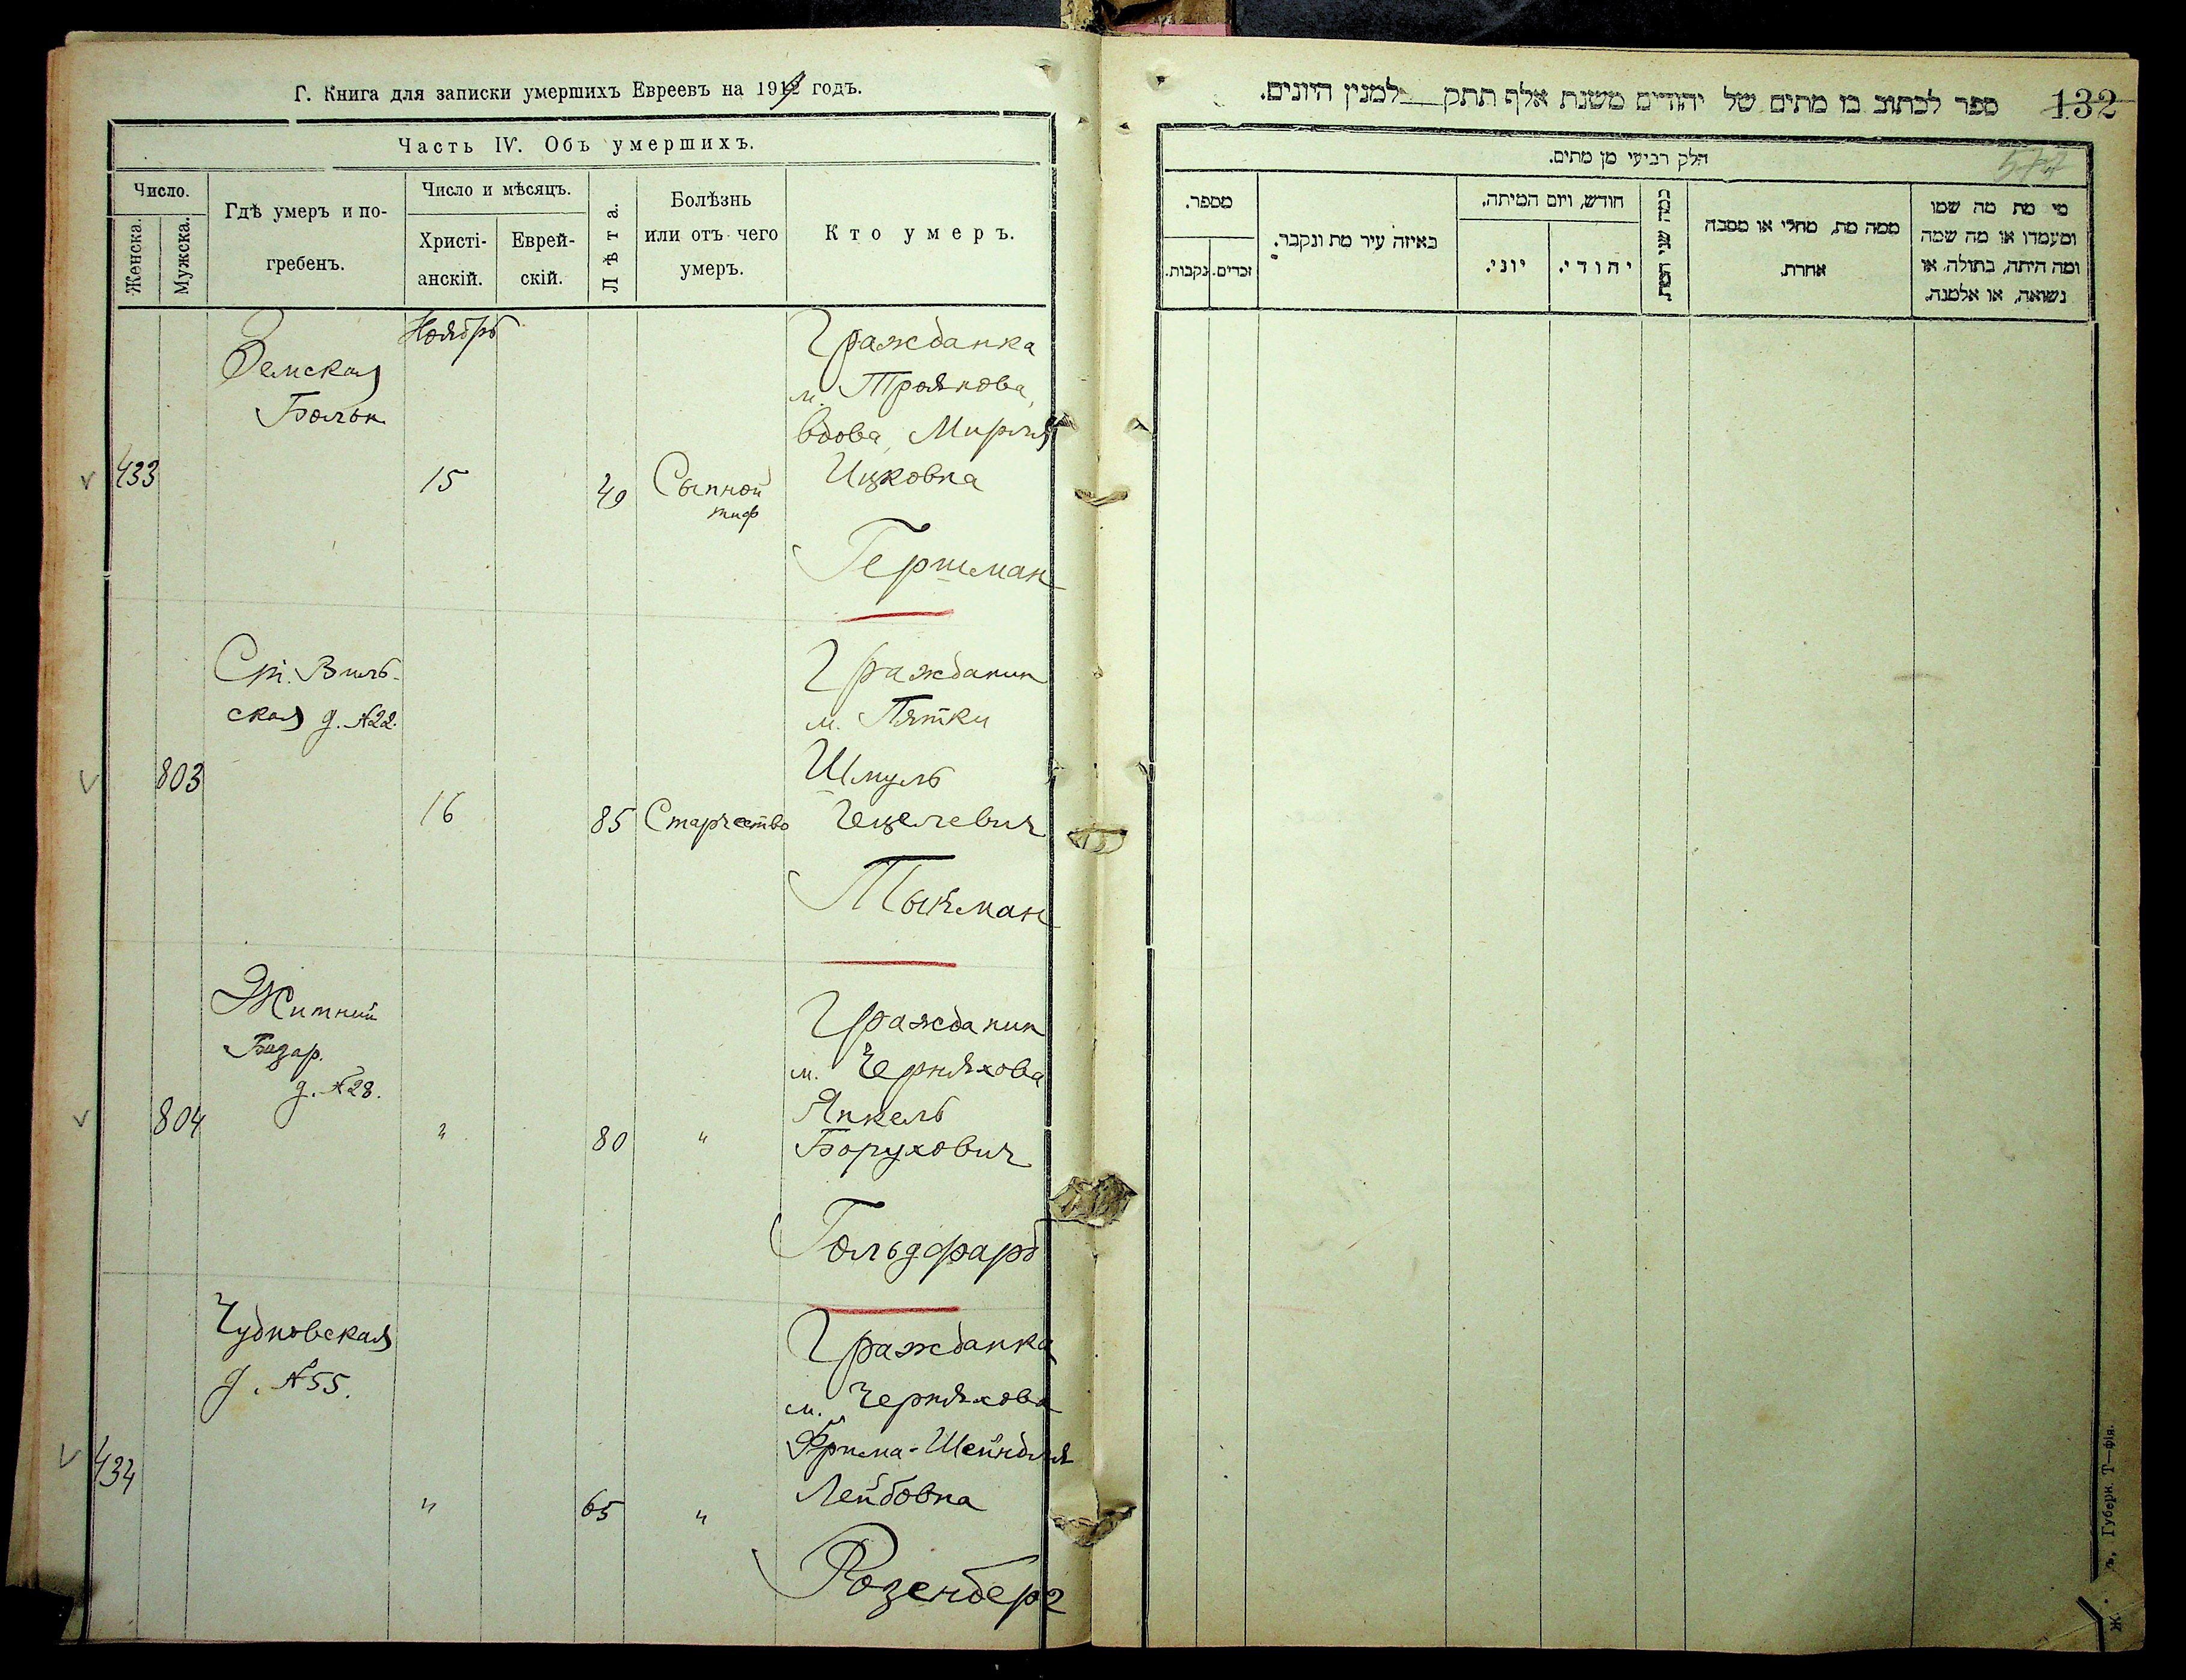 Г. Книга для записки умершихъ Евреевъ на 1919 годъ.
Часть IV. Объ умершихъ.
Число.
Женска.
Мужска.
Гдѣ умеръ и по-
гребенъ.
Число и мѣсяцъ.
Христі-
анскій.
Еврей-
скій.
Лѣта.
Болѣзнь
или отъ чего
умеръ.
Кто умеръ.
Ноябрь
Земская
Больн.
433
15
49
Сыпной
тиф
Гражданка
м. Троянова,
вдова Мирля
Ицковна
Гершман
Ст. Виль-
ская д. №22.
803
16
85
Старчество
Гражданин
м. Пятки
Шмуль
Гецелевич
Тыкман
Житний
Базар.
д. №28.
804
"
80
"
Гражданин
м. Черняхова
Янкель
Борухович
Гольдфарб
Чудновская
д. №55.
434
"
65
"
Гражданка
м. Черняхова
Фрима-Шейндля
Лейбовна
Розенберг
ספר לכתוב בו מתים של יהודים משנת אלף תתק למנין היונים.
132
577
חלק רביעי מן מתים.
מספר.
נקבות.
זכרים.
באיזה עיר מת ונקבר.
חודש, ויום המיתה.
יוני.
יהודי.
כמה שני המת.
ממה מת, מחלי או מסבה
אחרת.
מי מת מה שמו
ומעמדו או מה שמה
ומה היתה, בתולה, או
נשואה, או אלמנה.
Губерн. Т—фія.